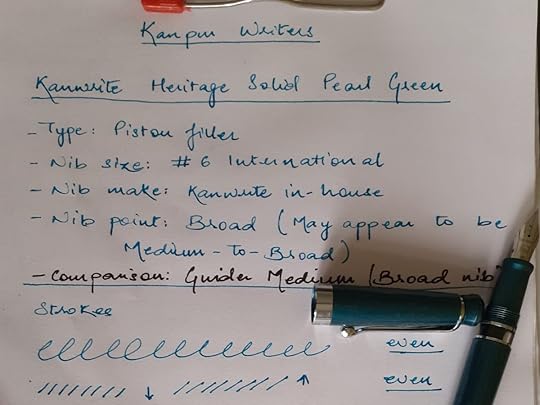 Kanpur Writers
Kanwrite Heritage Solid Pearl Green
- Type: Piston filler
- Nib size: # 6 International
- Nib make: Kanwrite in-house
- Nib point: Broad (May appear to be
Medium-to-Broad)
- Comparison: Guider Medium (Broad nib
Strokes
even
even